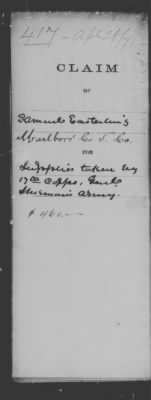 CLAIM
OF
Samuel Easterling
Marlboro Co. S. Ca.
FOR
Supplies taken by
17th Corps, Genl.
Sherman's Army.
$ 460.—